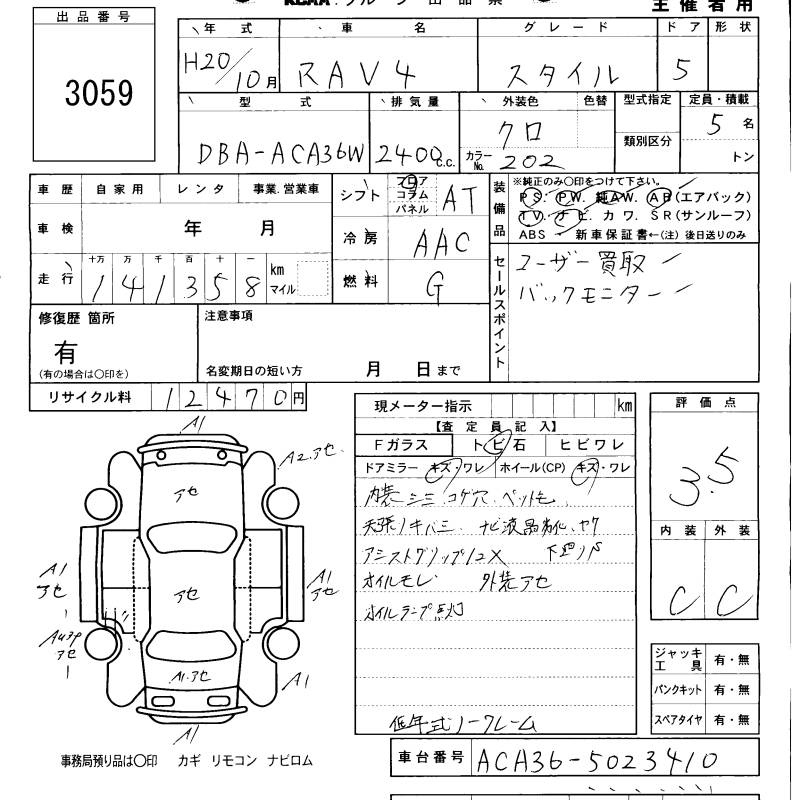 主催者用
出品番号
3059
年式 車名 グレード ドア 形状
H20/10月 RAV4 スタイル 5
型式 排気量 外装色 色替 型式指定 定員・積載
DBA-ACA36W 2400c.c. クロ 類別区分 5名
カラーNo. 202 トン
車歴 自家用 レンタ 事業.営業車
車検 年 月
走行 十万 万 千 百 十 一
141358 km マイル
シフト フロア コラム パネル AT
冷房 AAC
燃料 G
装備品 ※純正のみ〇印をつけて下さい。
PS. PW. 純AW. AB(エアバック)
TV. ナビ. カワ. SR(サンルーフ)
ABS 新車保証書←(注)後日送りのみ
セールスポイント
ユーザー買取
バックモニター
修復歴 箇所
有
(有の場合は〇印を)
注意事項
名変期日の短い方 月 日まで
リサイクル料 12470円
現メーター指示 km
【査定員記入】
Fガラス トビ石 ヒビワレ
ドアミラー キズ・ワレ ホイール(CP) キズ・ワレ
内装シミ コゲ穴 ペットモ
天張ノキバミ ナビ液晶劣化.ヤケ
アシストグリップ12X
オイルモレ 外装アセ
オイルランプ点灯
低年式ノークレーム
評価点
3.5
内装 外装
C C
ジャッキ工具 有・無
パンクキット 有・無
スペアタイヤ 有・無
A1
A2.アセ
アセ
A1 アセ
アセ
A1 アセ
アセ
A1.アセ
A1
A1
事務局預り品は〇印 カギ リモコン ナビロム
車台番号 ACA36-5023410